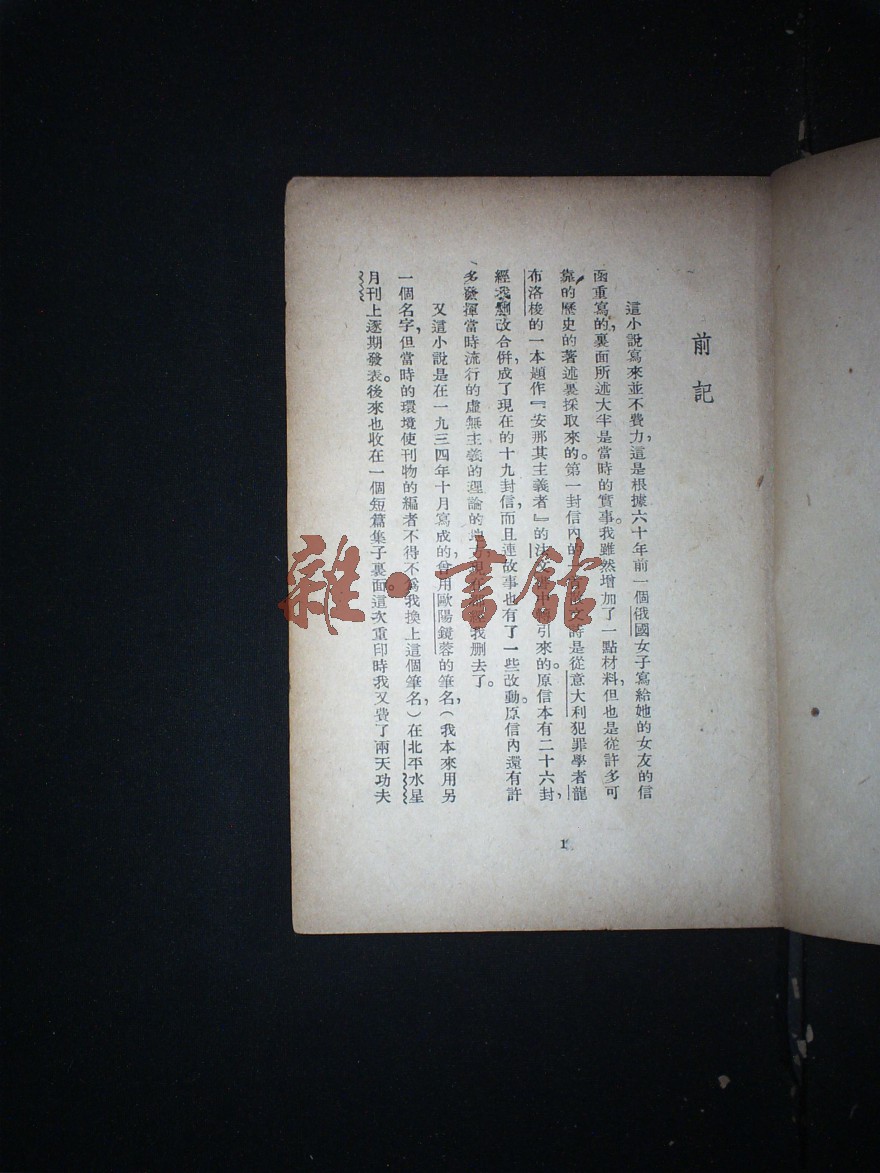 前記
這小說寫來並不費力,這是根據六十年前一個俄國女子寫給她的女友的信
函重寫的,裏面所述大半是當時的實事。我雖然增加了一點材料,但也是從許多可
靠的歷史的著述裏採取來的。第一封信內的詩是從意大利犯罪學者龍
布洛梭的一本題作『安那其主義者』的法文引來的。原信本有二十六封,
經我刪改合併,成了現在的十九封信,而且連故事也有了一些改動。原信內還有許
多發揮當時流行的虛無主義的理論的地方我删去了。
又這小說是在一九三四年十月寫成的,曾用歐陽鏡蓉的筆名,(我本來用另
一個名字,但當時的環境使刊物的編者不得不爲我換上這個筆名,)在北平水星
月刊上逐期發表。後來也收在一個短篇集子裏面。這次重印時我又費了兩天功夫
1
雜·書館